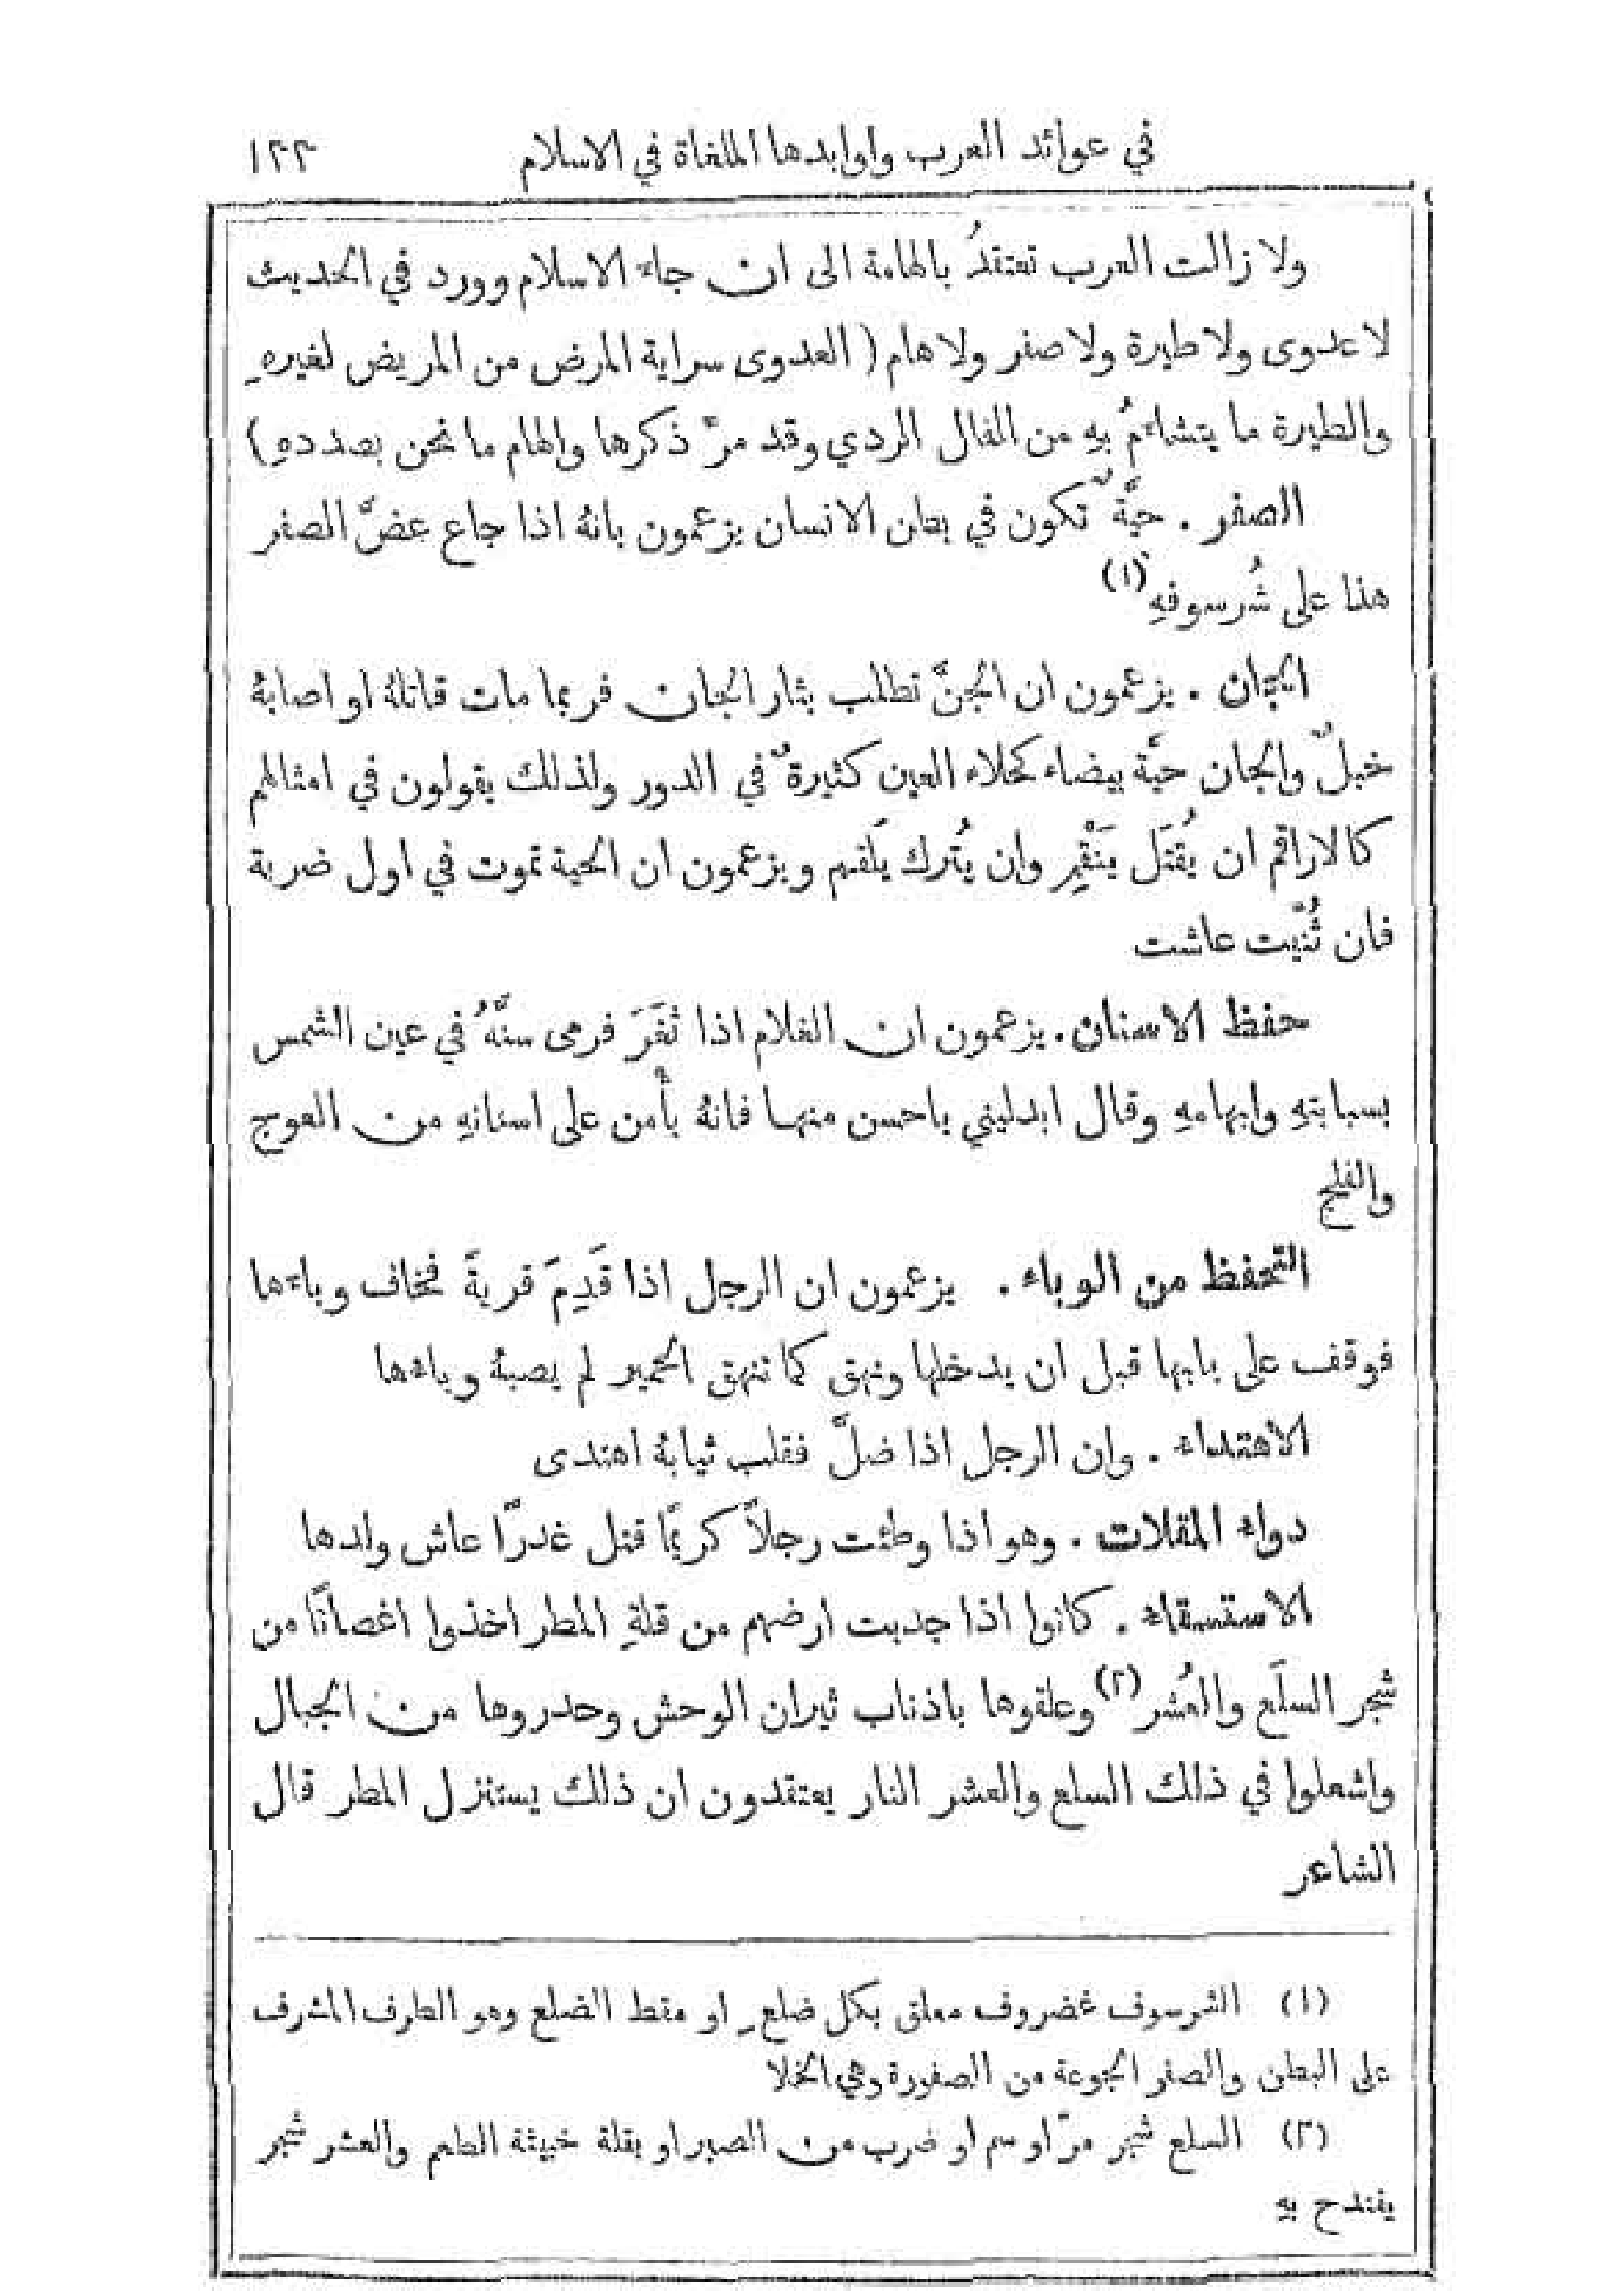 في عوائد العرب واوابدها الملغاة في الاسلام ١٢٣
ولا زالت العرب تعتقدُ بالهامة الى ان جاء الاسلام وورد في الحديث
لا عدوى ولا طيرة ولا صفر ولا هام (العدوى سراية المرض من المريض لغيرهِ
والطيرة ما يتشاءمُ بهِ من الفال الردي وقد مرَّ ذكرها والهام ما نحن بصددهِ)
الصفر . حيَّةٌ تكون في بطن الانسان يزعمون بانهُ اذا جاع عضَّ الصفر
هذا على شُرسوفهِ (١)
الجان . يزعمون ان الجنَّ تطلب بثار الجان فربما مات قاتلهُ او اصابهُ
خبلٌ والجان حيَّة بيضاء كحلاء العين كثيرةٌ في الدور ولذلك يقولون في امثالهم
كالاراقم ان يُقتَل يَنْقِم وان يُترك يَلقم ويزعمون ان الحية تموت في اول ضربة
فان ثُنِّيت عاشت
حفظ الاسنان . يزعمون ان الغلام اذا ثَغَرَ فرمى سنَّهُ في عين الشمس
بسبابتهِ وابهامهِ وقال ابدليني باحسن منها فانهُ يأْمن على اسنانهِ من العوج
والفلج
التحفظ من الوباء . يزعمون ان الرجل اذا قَدِمَ قريةً فخاف وباءها
فوقف على بابها قبل ان يدخلها ونهق كما تنهق الحمير لم يصبهُ وباءها
الاهتداء . وان الرجل اذا ضلَّ فقلب ثيابهُ اهتدى
دواء المقلات . وهو اذا وطئت رجلاً كريمًا قتل غدرًا عاش ولدها
الاستسقاء . كانوا اذا جدبت ارضهم من قلةِ المطر اخذوا اغصانًا من
شجر السلَع والعُشر (٢) وعلقوها باذناب ثيران الوحش وحدروها من الجبال
واشعلوا في ذلك السلع والعشر النار يعتقدون ان ذلك يستنزل المطر قال
الشاعر
(١) الشرسوف غضروف معلق بكل ضلعٍ او مقط الضلع وهو الطرف المشرف
على البطن والصفر الجوعة من الصفورة وهي الخلا
(٢) السلع شجر مرّ او سم او ضرب من الصبر او بقلة خبيثة الطعم والعشر شجر
يقتدح بهِ